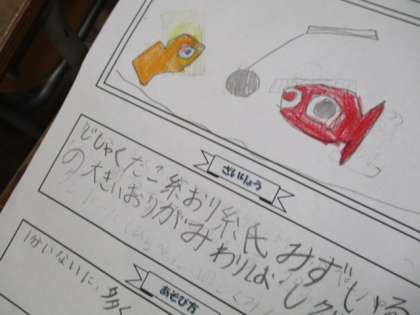 ざいりょう
じしゃくたこ糸おり紙みずいろ
の大きいおりがみわりばしク
あそび方
1かいないに、多く